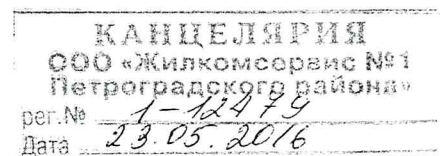 КАНЦЕЛЯРИЯ
ООО «Жилкомсервис №1
Петроградского района»
рег.№ 1-12479
Дата 23.05.2016